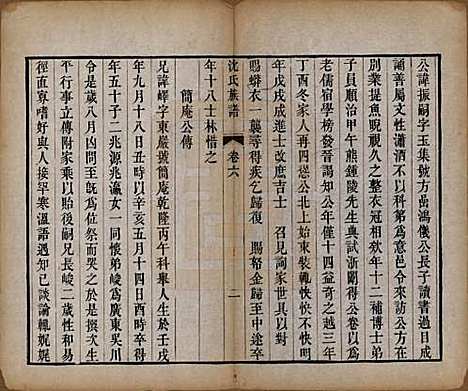 公諱振嗣字玉集號方咼鴻儀公長子讀書過目成
誦善屬文性灑如不以科第爲意邑令許欽其名詣
別業提氏睨視久之整衣冠相欵年十二補博士弟
子員順治甲午熊鍾陵先生典試浙闈得公卷以爲
老儒宿學榜發晉謁知公年僅十四益奇之越三年
丁酉冬家人再四慫公北上始束裝輒怏怏不樂明
年戊戌成進士改庶吉士 召見詢家世具以對
賜蟒衣一襲尋得疾乞歸復 賜帑金歸至中途卒
年十八士林惜之
簡庵公傳
兄諱嶧字東嚴號簡庵乾隆丙午科舉人生於壬戌
年九月十八日丑時以辛亥五月十四日酉時卒得
年五十子二兆源兆瀛女一同懷弟峻爲廣東吳川
令是歲八月凶問至旣爲位祭而哭之於是撰次生
平行事立傳附家乘以貽後嗣兄長峻二歲性和易
徑直寡嗜好與人接罕寒溫語遇知己談論輒娓娓
沈氏族譜 卷六 二